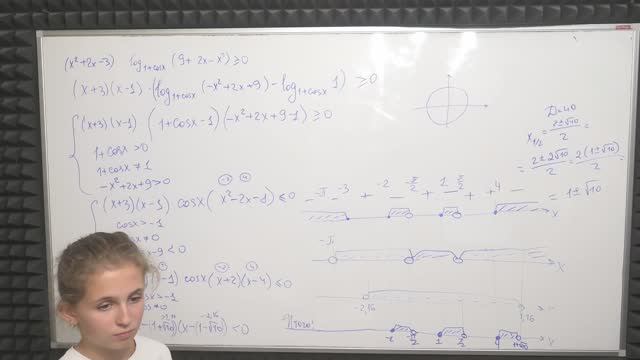 (x²+2x-3) log₁₊cosx (9+2x-x²) ≥0
(x+3)(x-1)·(log₁₊cosx (-x²+2x+9) - log₁₊cosx 1) ≥0
(x+3)(x-1) (1+cosx-1)(-x²+2x+9-1) ≥0
1+cosx >0
1+cosx ≠1
-x²+2x+9>0
(x+3)(x-1) cosx (x²-2x-8) ≤0
-2 4
cosx>-1
≠0
x-9<0
-1) cosx (x+2)(x-4) ≤0
-2 4
>-1
≠0
-(1+√10))(x-(1-√10)) <0
-2,16
D=40
x₁/₂ = 2±√40 / 2 =
= 2±2√10 / 2 = 2(1±√10) / 2 =
= 1±√10
-π -3 + -2 - π/2 + 1 - π/2 + 4 -
x
-π
x
-2,16
Итого:
x